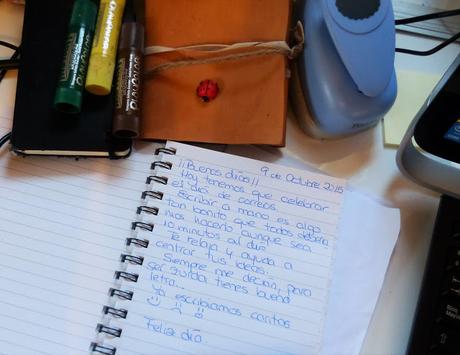 9 de Octubre 2015
¡¡Buenos días!!
Hoy tenemos que celebrar
el día de correos
Escribir a mano es algo
tan bonito que todos debería
mos hacerlo aunque sea
10 minutos al día
Te relaja y ayuda a
centrar tus ideas.
Siempre me decían, para
ser zurda tienes buena
letra...
Ya escribíamos cartas
Feliz día